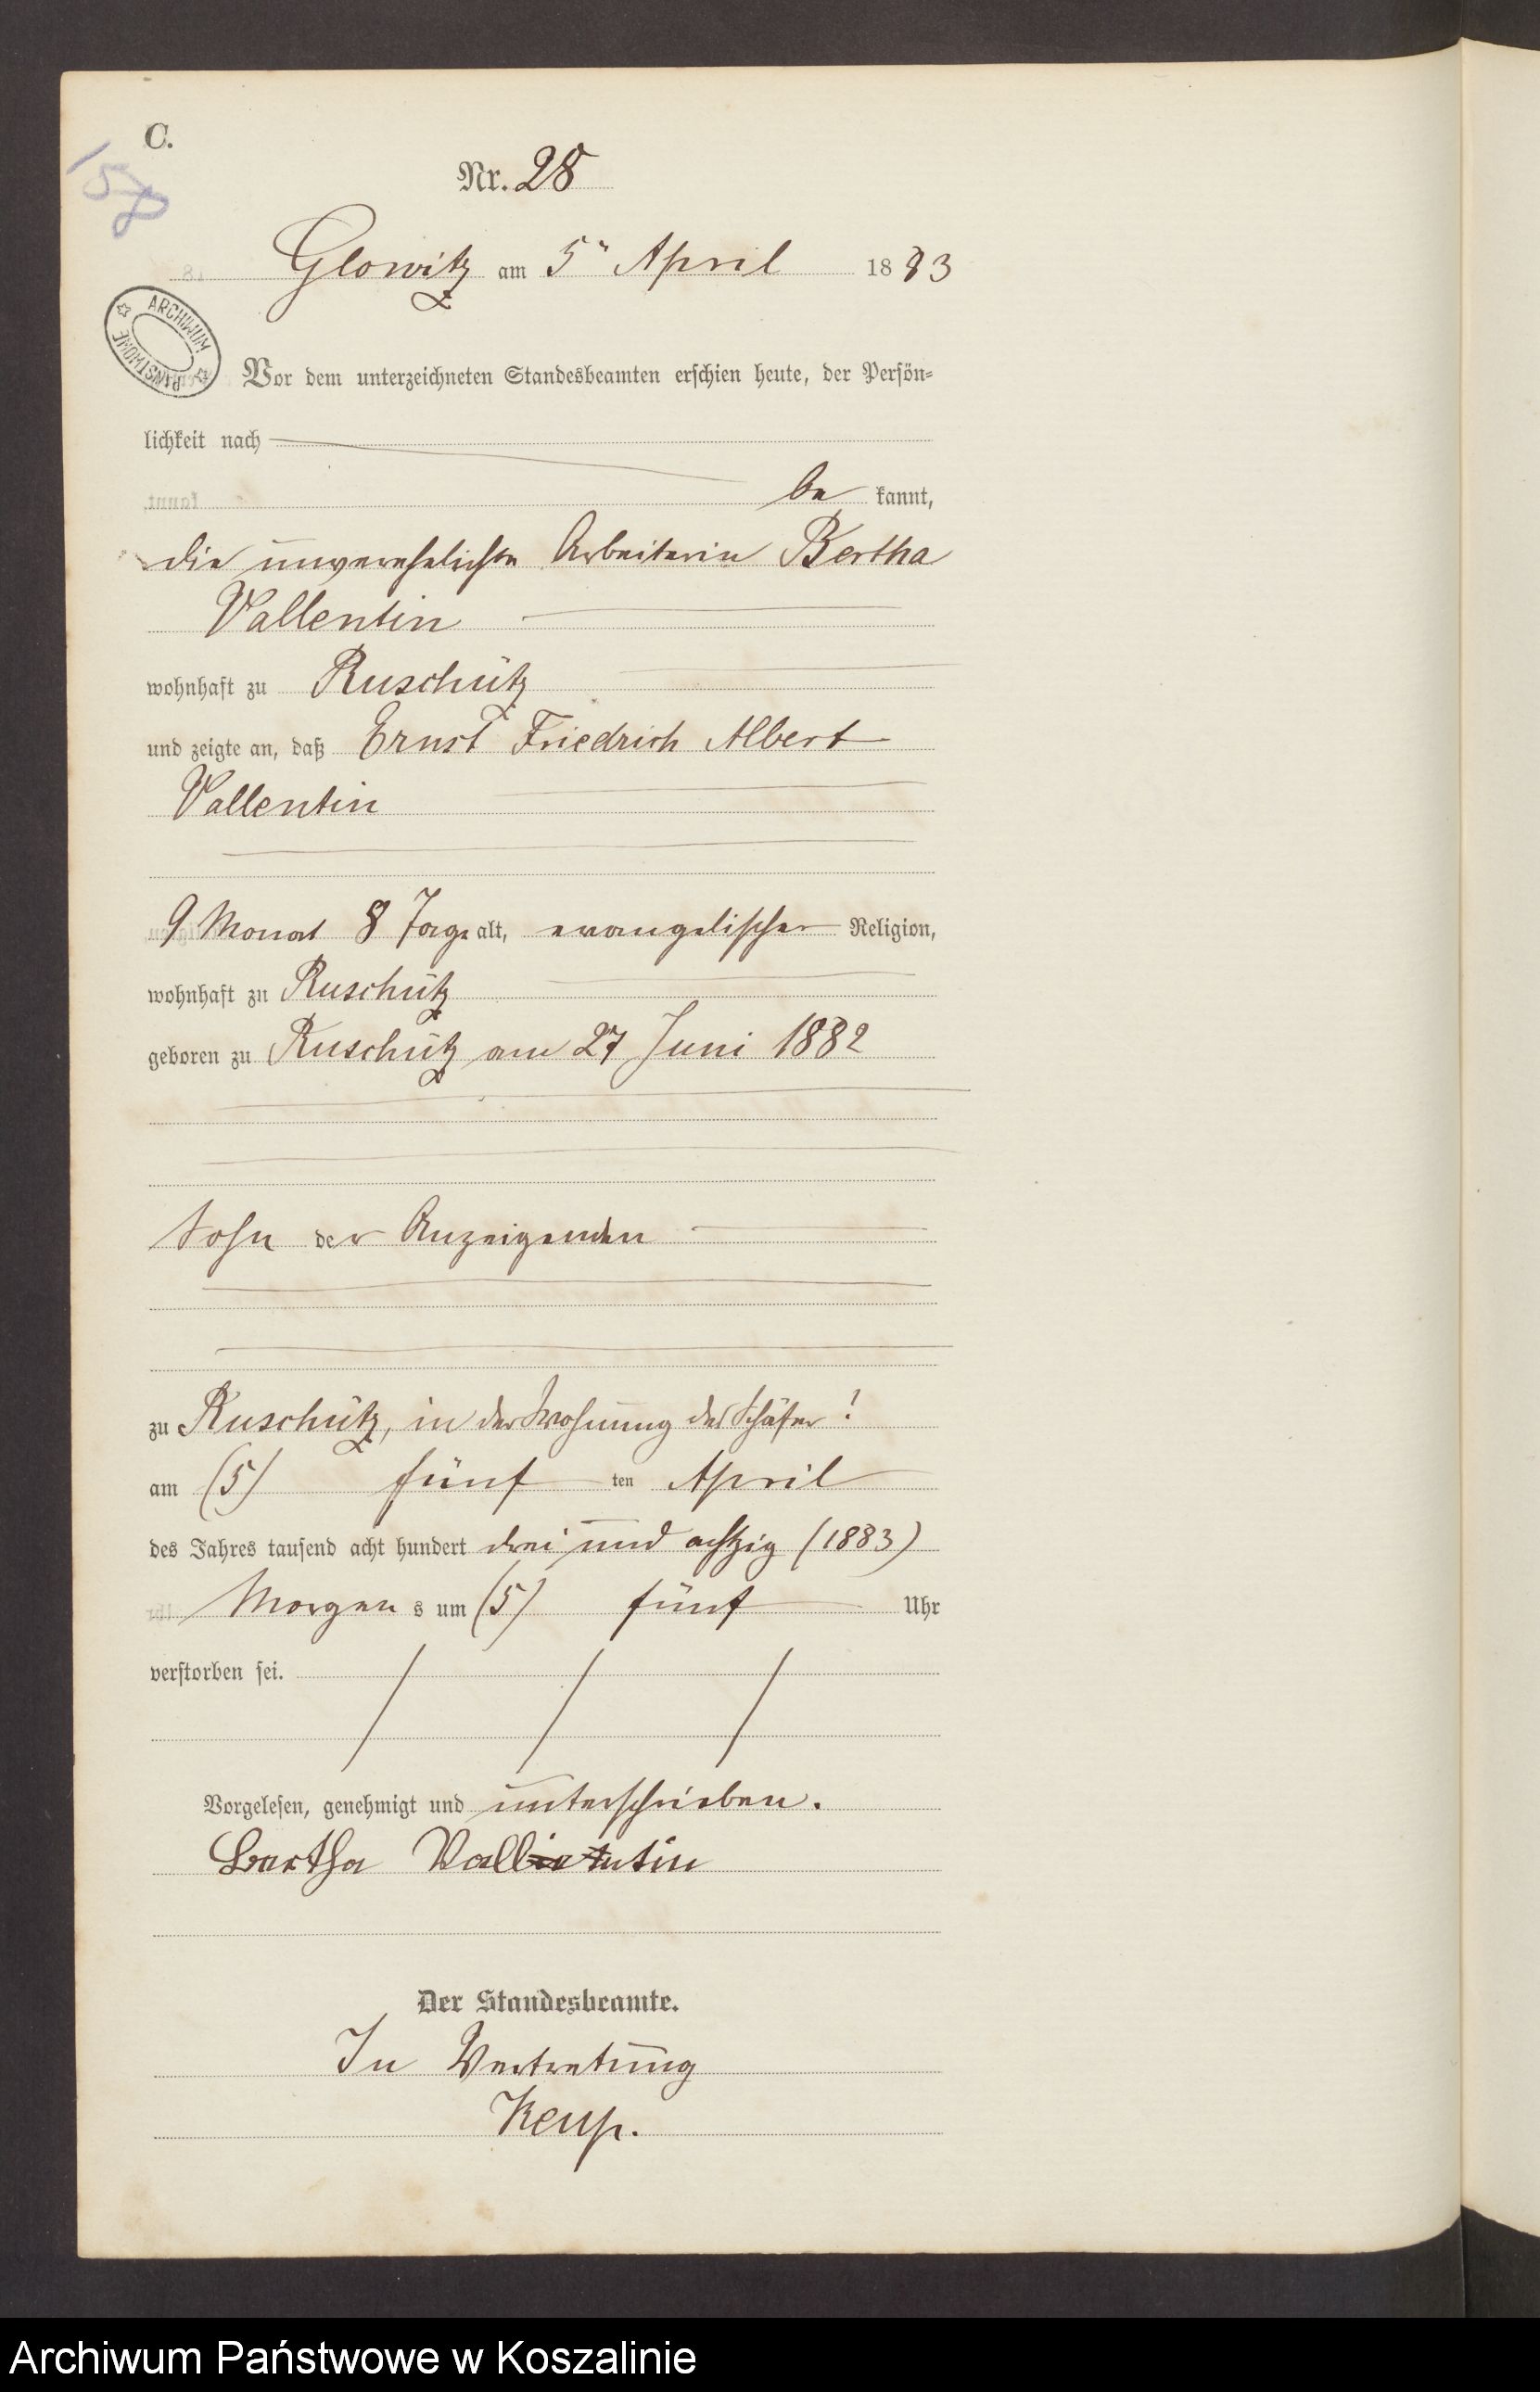 C.
158
Nr. 28
Glowitz am 5" April 1883
ARCHIWUM PAŃSTWOWE
Vor dem unterzeichneten Standesbeamten erschien heute, der Persön-
lichkeit nach
be kannt,
die unverehelichte Arbeiterin Bertha
Vallentin
wohnhaft zu Ruschütz
und zeigte an, daß Ernst Friedrich Albert
Vallentin
9 Monat 8 Tage alt, evangelischer Religion,
wohnhaft zu Ruschütz
geboren zu Ruschütz am 27 Juni 1882
Sohn der Anzeigenden
zu Ruschütz, in der Wohnung des Schäfer !
am (5) fünf ten April
des Jahres tausend acht hundert drei und achtzig (1883)
Morgen s um (5) fünf Uhr
verstorben sei.
Vorgelesen, genehmigt und unterschrieben.
Bertha
Der Standesbeamte.
In Vertretung
Keup.
Archiwum Państwowe w Koszalinie